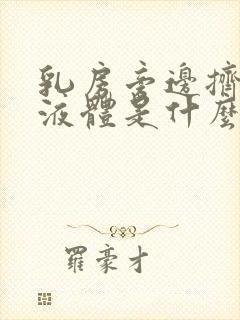 乳房旁邊擠
液體是什麼
羅豪才